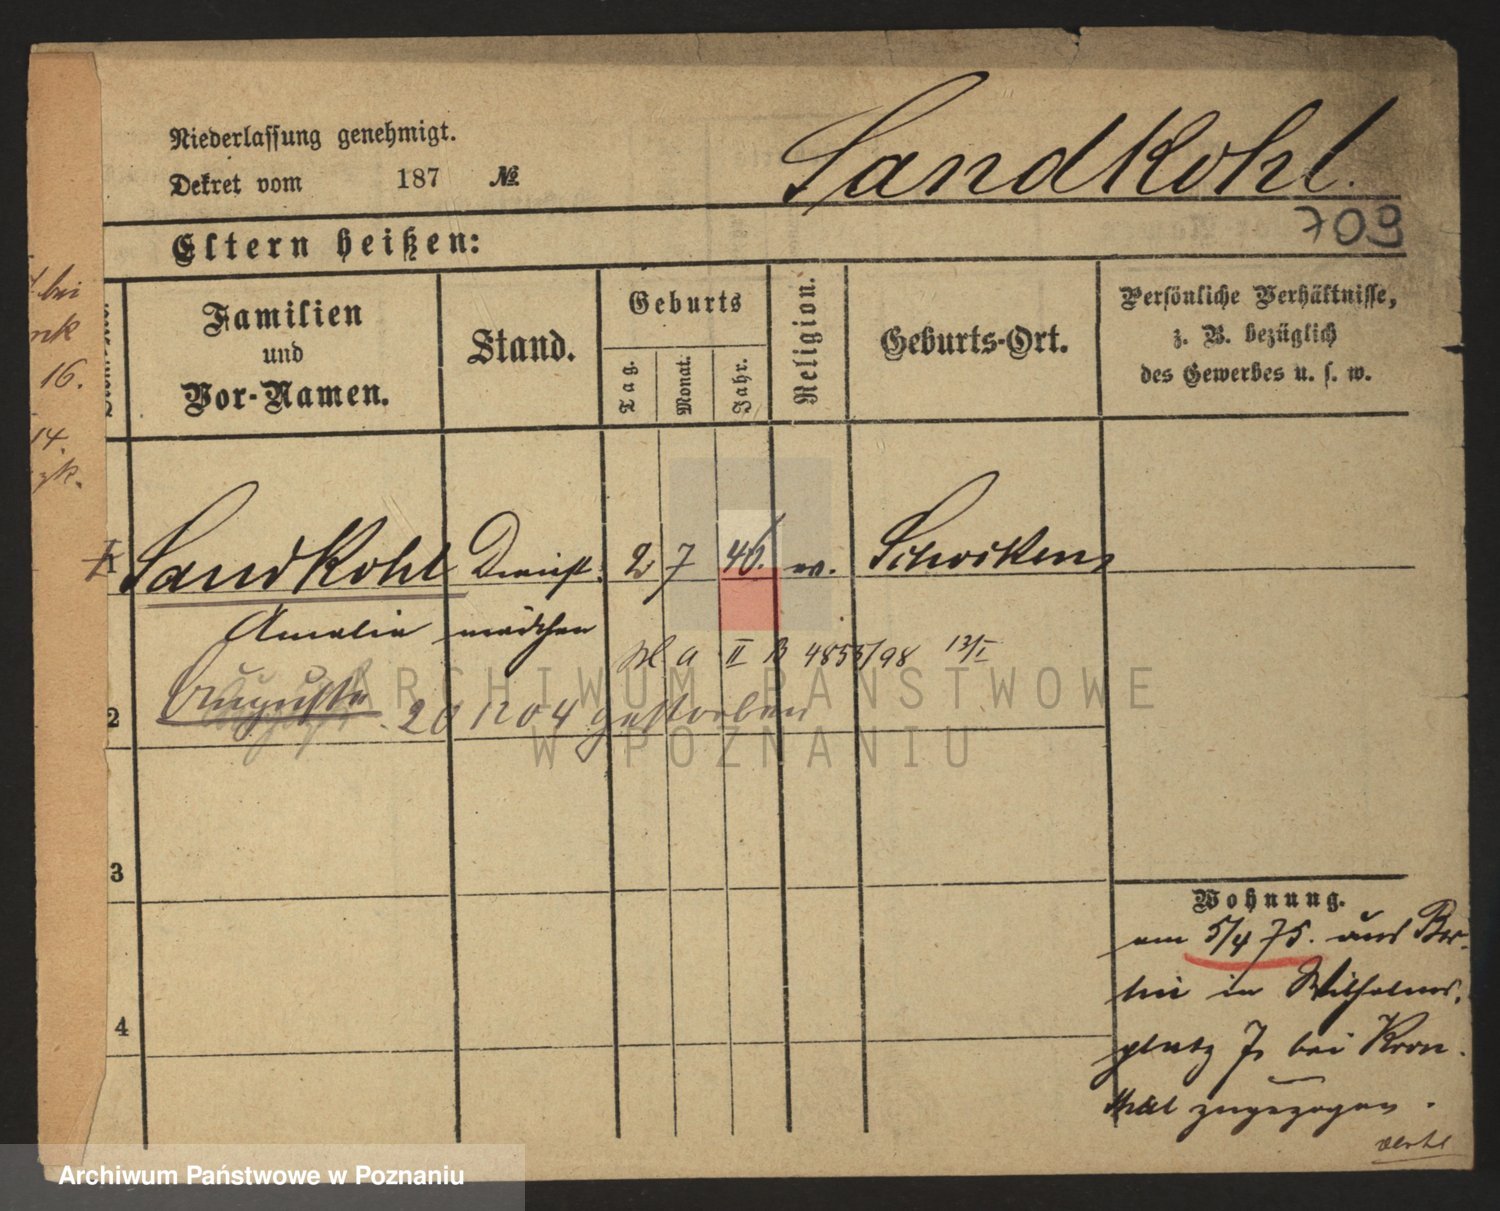 Niederlassung genehmigt.
Dekret vom 187 №
Sandkohl.
709
Eltern heißen:
Familien
und
Vor-Namen.
Stand.
Geburts
Tag.
Monat.
Jahr.
Religion.
Geburts-Ort.
Persönliche Verhältnisse,
z. B. bezüglich
des Gewerbes u. s. w.
bei
16.
14.
Sandkohl Dienst 2 7 46. Schocken
Amalie mädchen
II B 4855/98 13/I
2 Auguste 20 12 04 gestorben
3
4
Wohnung.
am 5/4 75. aus Ber-
lin in Wilhelms-
platz 7 bei Kron-
thal zugezogen.
ARCHIWUM PAŃSTWOWE
W POZNANIU
Archiwum Państwowe w Poznaniu